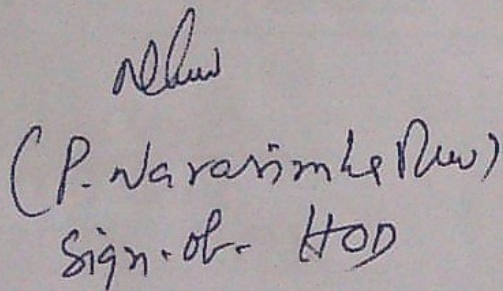 (P. Narasimha Rao)
Sign. of. HOD